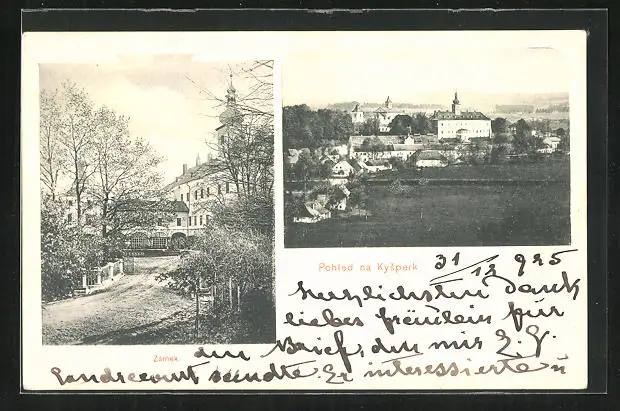 Pohled na Kyšperk
31/12 925
Herzlichsten Dank
liebes Fräulein für
Zámek
den Brief, den mir Z. G.
sandte. Er interessierte u